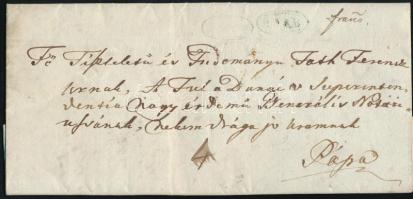 franco.
Tiszteletü és Tudományu Toth Ferencz
Urnak, A Tul a Dunai Superinten
dentia nagy érdemü Generális Notári
ussának, nekem drága jó uramnak
Pápa